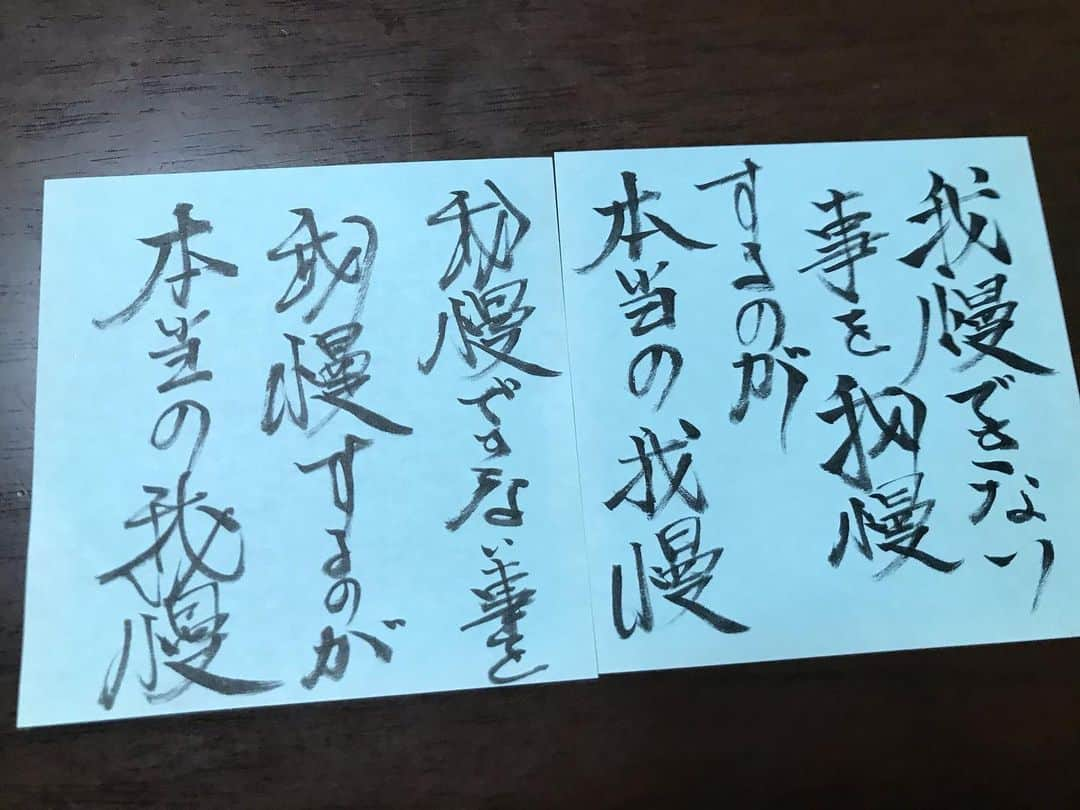 我慢できない
事を我慢
するのが
本当の我慢
我慢できない事を
我慢するのが
本当の我慢